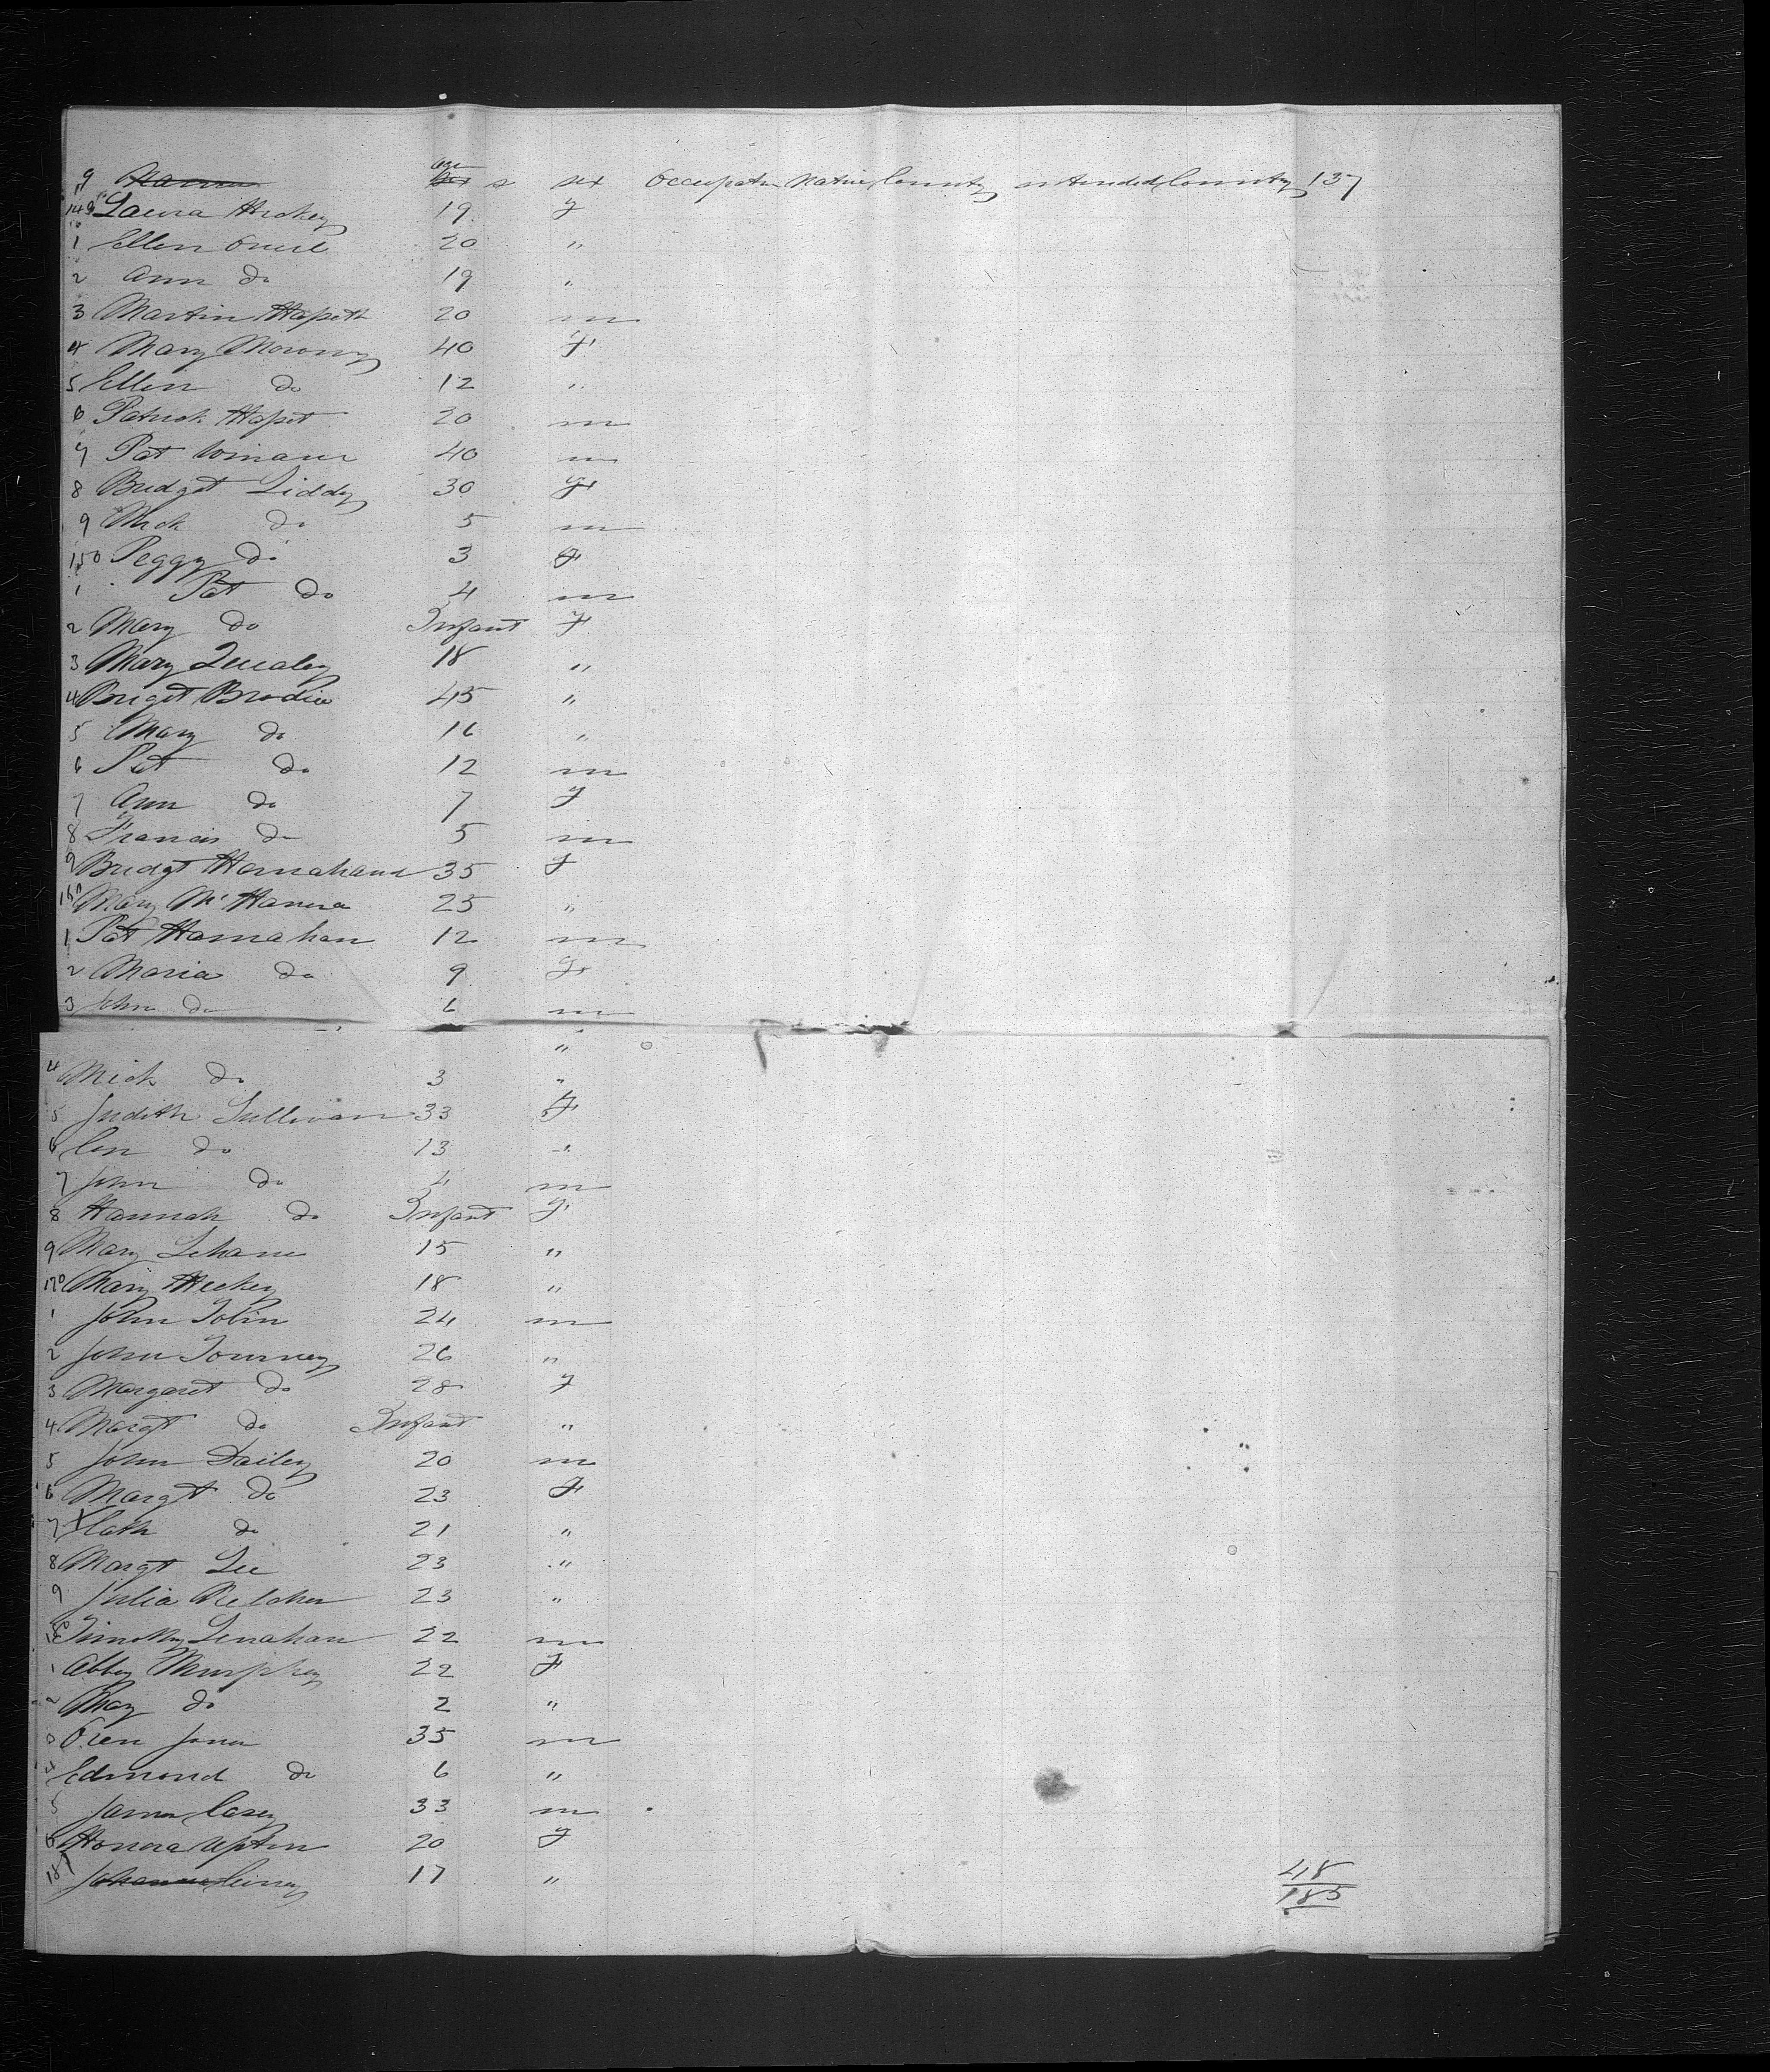 9 Names age s sex Occupation Native Country intended Country 137
149 Laura Hickey 19 F
1 Ellen Oneil 20 "
2 Ann Do 19 "
3 Martin Hapeth 20 m
4 Mary Morony 40 F
5 Ellen do 12 "
6 Patrick Hapet 20 m
7 Pat 40 m
8 Bridget Liddy 30 F
9 Mick do 5 m
150 Peggy do 3 F
1 Pat do 4 m
2 Mary do Infant F
3 Mary Quealey 18 "
4 Briget Brodie 45 "
5 Mary do 16 "
6 Pat do 12 m
7 Ann do 7 F
8 Francis do 5 m
9 Bridgt Hannahane 35 F
160 Mary Mc 25 "
1 Pat Hannahan 12 m
2 Maria do 9 F
3 John do 6 m
"
4 Mick do 3 "
5 Judith Sullivan 33 F
6 Con do 13 "
7 John do 4 m
8 Hannah do Infant F
9 Mary Lehane 15 "
170 Mary Hickey 18 "
1 John Tobin 24 m
2 John Tourney 26 "
3 Margaret do 28 F
4 Margt do Infant "
5 John Dailey 20 m
6 Margt do 23 F
7 Cath do 21 "
8 Margt Lee 23 "
9 Julia Kelcher 23 "
180 Timothy Lenahan 22 m
1 Abby Murphey 22 F
2 May do 2 "
3 Jones 35 m
4 Edmond do 6 "
5 James Casey 33 m
6 Honora Upton 20 F
187 Johanna 17 "
48
185